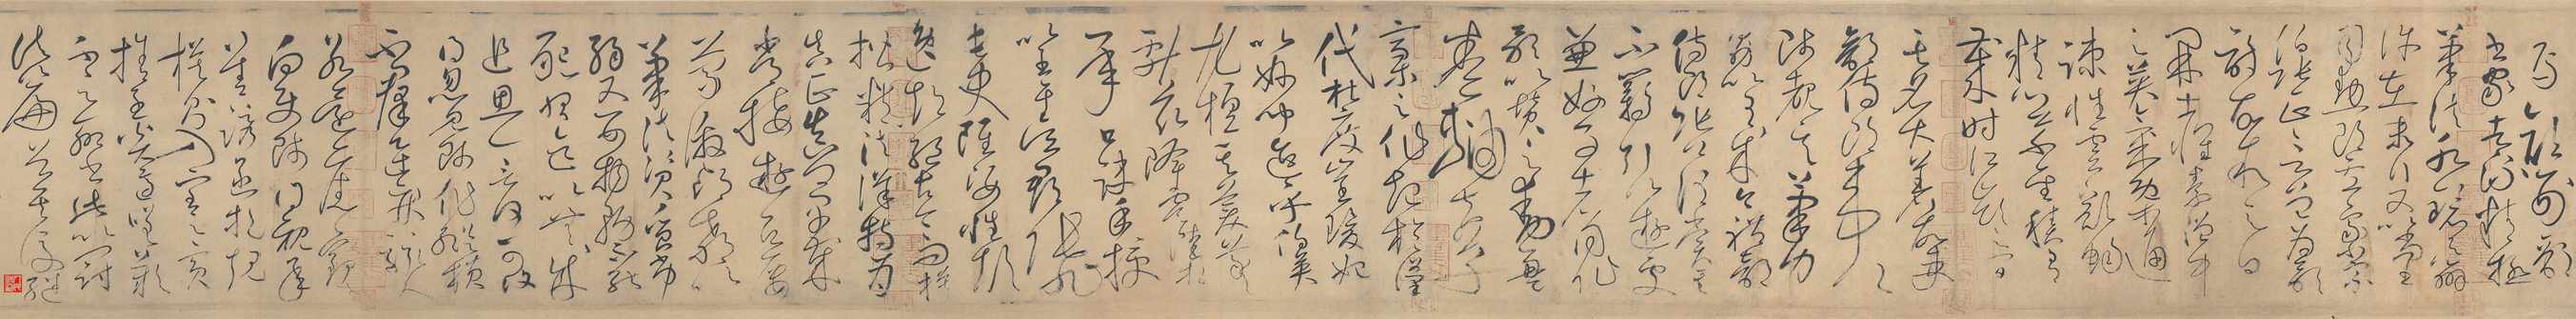 焉顏刑部
書家者流精極
筆法水鏡之辨
許在末行又以尚書
司勳郎盧象小宗
伯張正言曾為歌
詩故敘之曰
開士懷素僧中
之英氣概通
疏性靈豁暢
精心草聖積有
歲時江嶺之間
其名大著故吏
部侍郎韋公
陟睹其筆力
勗以有成今禮部
侍郎張公謂賞其
不羈引以遊處
兼好事者同作
歌以贊之動盈
卷軸夫草
稿之作起於漢
代杜度崔瑗始
以妙聞迨乎伯英
尤擅其美羲
獻茲降虞陸相
承口訣手授
以至於吳郡張旭
長史雖姿性顛
逸超絕古今而模
楷精法詳特為
真正真卿早歲
常接遊居屢
蒙激昂教以
筆法資質劣
弱又嬰物務不能
懇習迄以無成
追思一言何可復
得忽見師作縱橫
不群迅疾駭人
若還舊觀
向使師得親承
善誘亟挹規
模則入室之賓
捨子奚適嗟歎
不足聊書此以冠
諸篇首